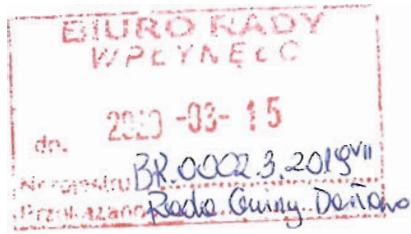 BIURO RADY
WPŁYNĘŁO
dn. -03-15
Nr rejestru BR.0002.3.2019 VII
Przekazano Rada Gminy